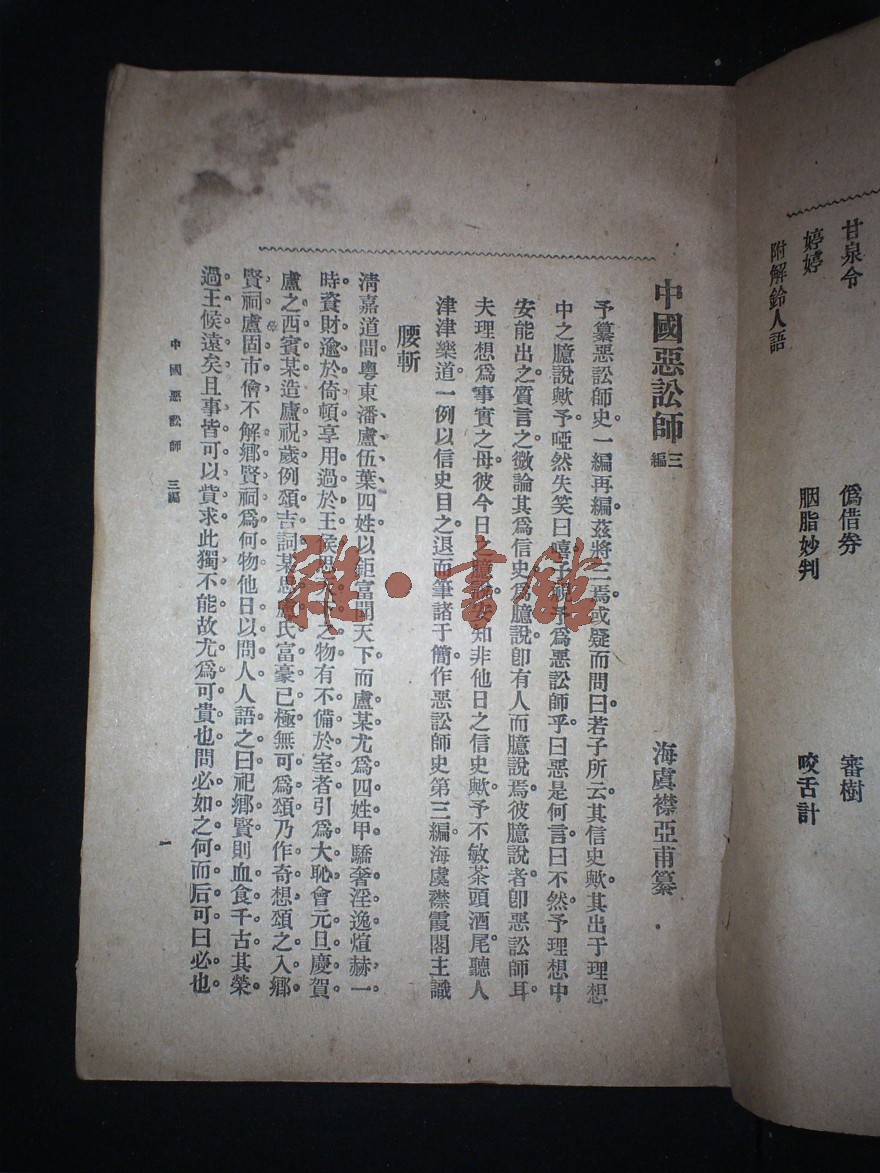 甘泉令　僞借券　審樹
婷婷　胭脂妙判　咬舌計
附解鈴人語
中國惡訟師三編　海虞襟亞甫纂
予纂惡訟師史一編再編茲將三焉或疑而問曰若子所云其信史歟其出于理想
中之臆說歟予啞然失笑曰嘻子視予爲惡訟師乎曰惡是何言曰不然予理想中
安能出之質言之微論其爲信史爲臆說卽有人而臆說焉彼臆說者卽惡訟師耳
夫理想爲事實之母彼今日之臆說安知非他日之信史歟予不敏茶頭酒尾聽人
津津樂道一例以信史目之退而筆諸于簡作惡訟師史第三編海虞襟霞閣主識
腰斬
淸嘉道間粵東潘盧伍葉四姓以鉅富聞天下而盧某尤爲四姓甲驕奢淫逸煊赫一
時資財逾於倚頓享用過於王侯思天下之物有不備於室者引爲大恥會元旦慶賀
盧之西賓某造廬祝歲例頌吉詞某思盧氏富豪已極無可爲頌乃作奇想頌之入鄉
賢祠盧固市儈不解鄉賢祠爲何物他日以問人人語之曰祀鄉賢則血食千古其榮
過王候遠矣且事皆可以貲求此獨不能故尤爲可貴也問必如之何而后可曰必也
中國惡訟師　三編
一
雜·書館